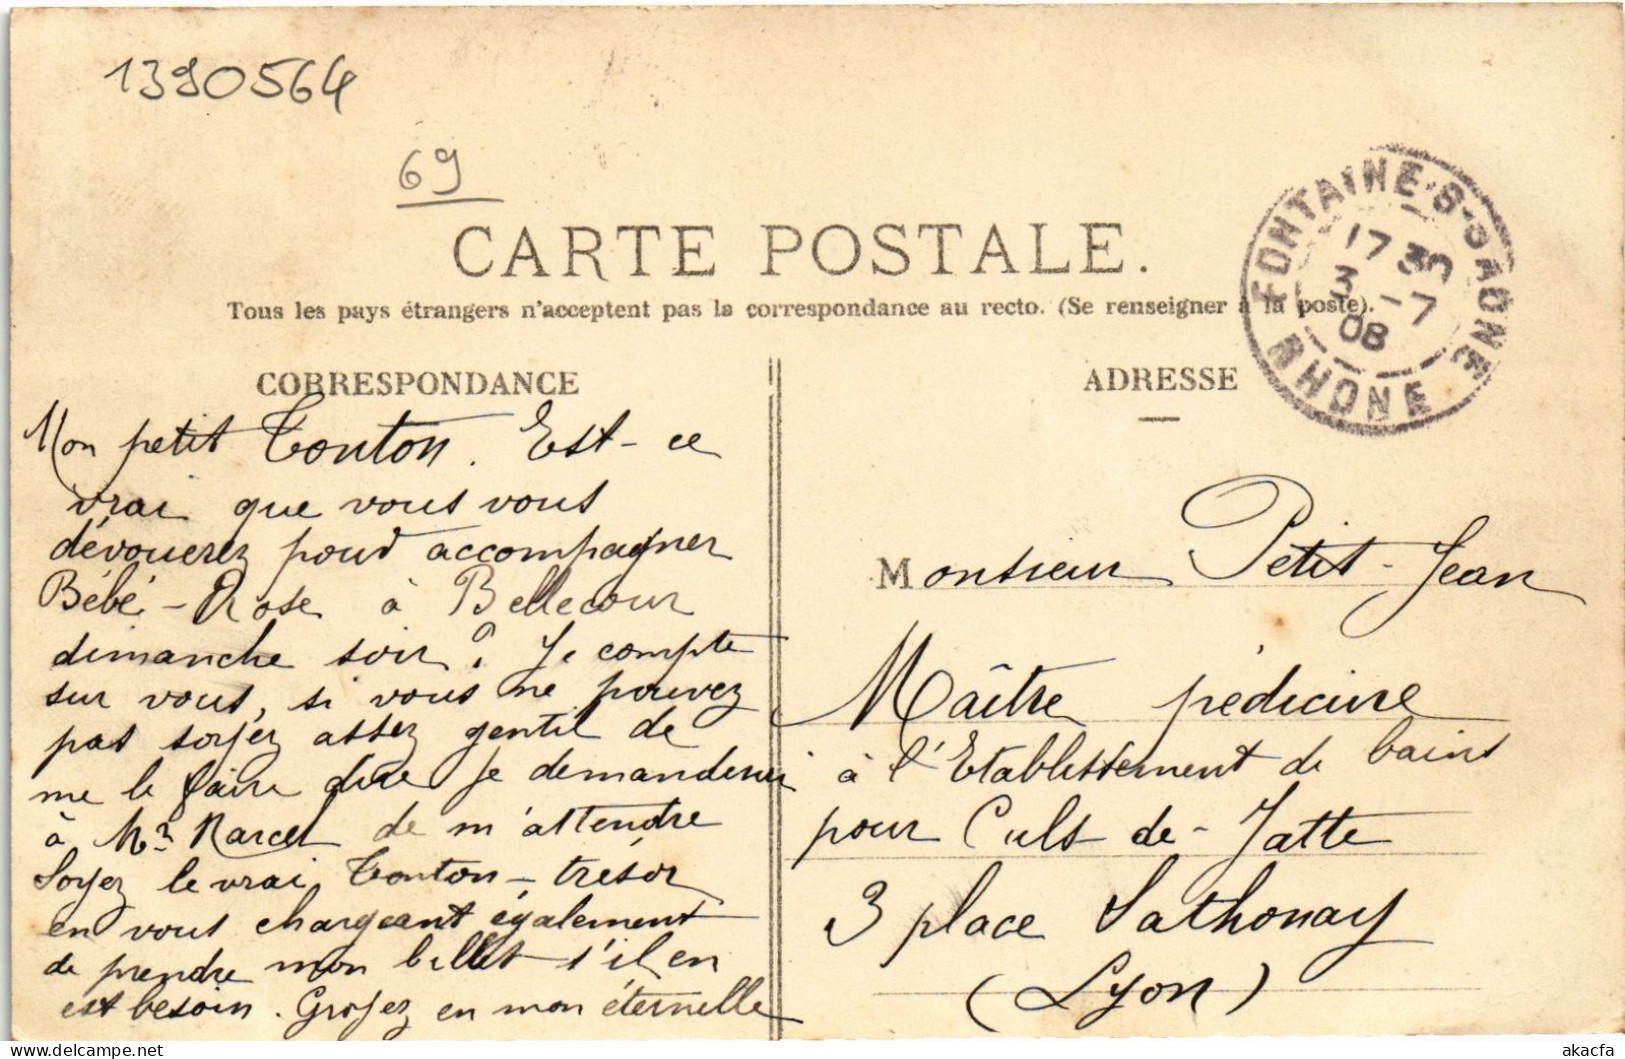 1390564
69
CARTE POSTALE.
Tous les pays étrangers n'acceptent pas la correspondance au recto. (Se renseigner à la poste).
CORRESPONDANCE
Mon petit Tonton. Est-ce
vrai que vous vous
dévouerez pour accompagner
Bébé-Rose à Bellecour
dimanche soir? Je compte
sur vous, si vous ne pouvez
pas soyez assez gentil de
me le faire dire je demanderai
à Mr Marcel de m'attendre
Soyez le vrai Tonton-trésor
en vous chargeant également
de prendre mon billet s'il en
est besoin. Croyez en mon éternelle
ADRESSE
Monsieur Petit-Jean
Maître pédicure
à l'Etablissement de bains
pour Culs-de-Jatte
3 place Sathonay
(Lyon)
FONTAINE-S-SAONE
17 30
3 -7
08
RHONE
akacfa